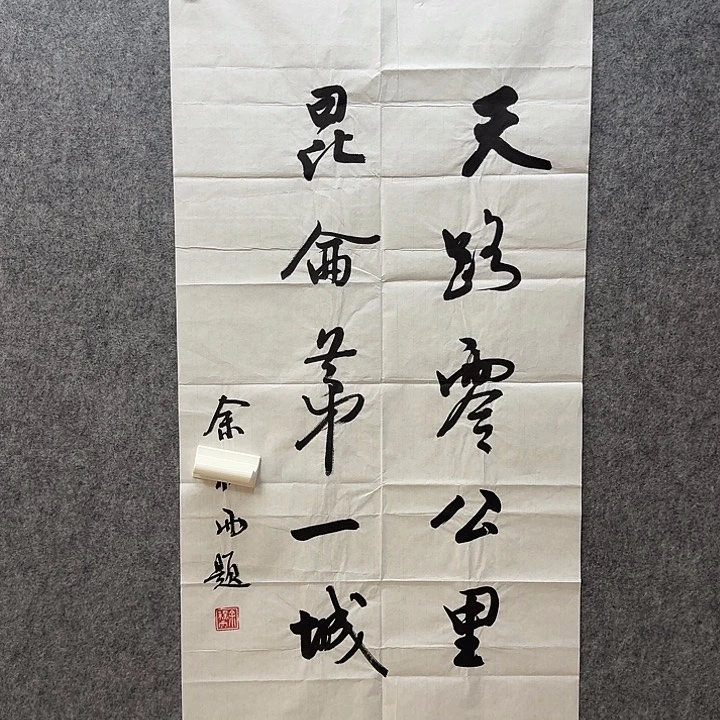 天路零公里
昆侖第一城
余 雨題